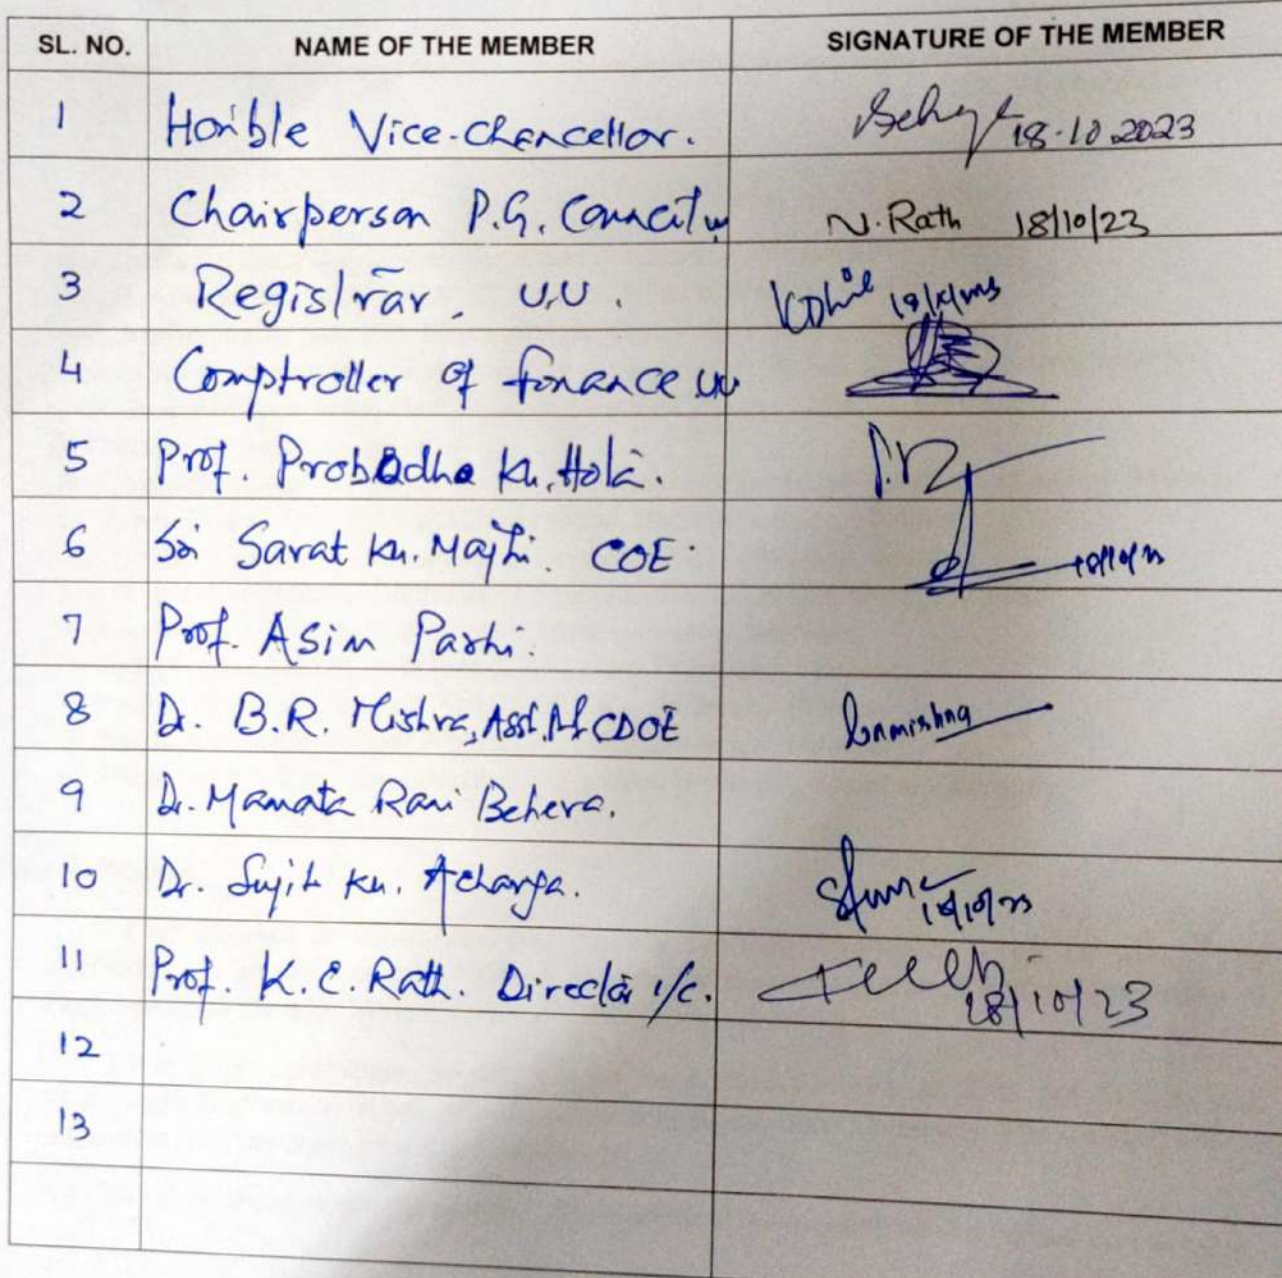 SL. NO. NAME OF THE MEMBER SIGNATURE OF THE MEMBER
1 Hon'ble Vice-Chancellor. 18.10.2023
2 Chairperson P.G. Council N. Rath 18/10/23
3 Registrar, U.U.
4 Comptroller of finance UU
5 Prof. Probodha Ku. Hota.
6 Sri Sarat Ku. Majhi. COE. 18/10/23
7 Prof. Asim Parhi.
8 Dr. B.R. Mishra, Asst. CDOE
9 Dr. Mamata Rani Behera.
10 Dr. Sujit Ku. Acharya. 18/10/23
11 Prof. K.C. Rath. Director i/c. 18/10/23
12
13